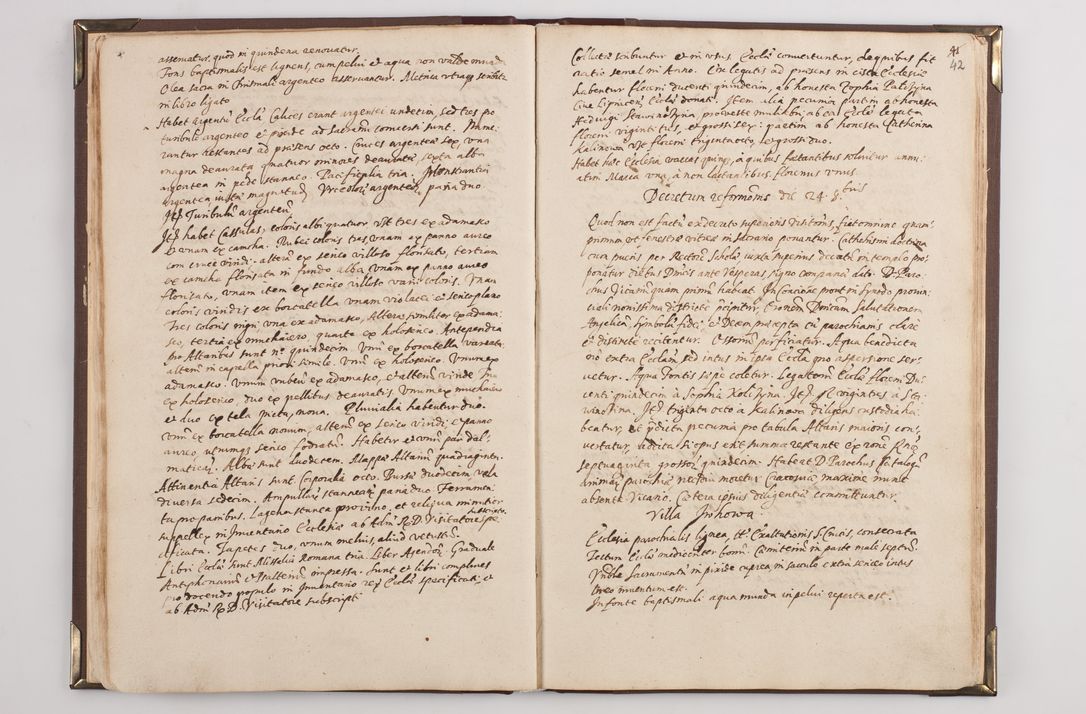 asservatur, quod in quindena renovatur.
Fons baptismalis est ligneus, cum pelui et aqua non valde munda
Olea sacra in Chrismali argenteo asservantur. Metrica utraq, scribitur
in libro ligato
Habet argentū Eccła Calices erant argentei undecim, sed tres pro
turibulo argenteo et pixide ad Sacram conversi sunt. Nume:
rantur restantes ad præsens octo. Cruces argenteæ sex, vna
magna deaurata, quatuor minores deauratæ, sexta alba
argentea in pede stanneo. Pacificalia tria. Monstrantia
argentea iustæ magnitud: Vrceolorū argenteorū paria duo
Itē Turibulū argenteū
Itē habet Casulas, coloris albi quatuor. Vt tres ex adamasco
et vnam ex camcha. Rubei coloris tres, vnam ex panno aureo
cum cruce viridi. alterā ex serico villoso floritato, tertiam
ex camcha floritata in fundo alba. Vnam ex panno aureo
floritato, vnam item ex serico villoso varij coloris. Vnam
coloris viridis ex borcatella vnam violacei ex serico plano
Tres coloris nigri, vna ex adamasco, Altera similiter ex adama:
sco, tertia ex muchaiero, quarta ex holoserico. Antependia
pro Altaribus sunt nº quindecim. Vnū ex borcatella variata
alterū in capella priori simile. Vnū ex holoserico. Vnum ex
adamasco. Vnum rubeū ex adamasco, et alterū viride
ex holoserico, duo ex pellibus deauratis. Vnum ex muchaiero
et duo ex tela picta, nova. Pluvialia habentur duo.
vnū ex borcatella novum, alterū ex serico viridi, et panno
aureo, utrumq, serico sodratū. Habetur et vnū par dal:
maticarū. Albæ sunt duodecem. Mappæ Altariū quadraginta.
Attinentia Altaris sunt. Corporalia octo. Bursæ duodecim, vela
diversa sedecim. Ampullarū stannearū paria duo. Ferramen:
ta pro panibus. Lagena stannea pro vino, et reliqua minutior
supellex in Inventario Ecclesiæ ab Adm̄ R.D. Visitatore subscripto spe:
cificata. Tapetes duo, vnum melius, aliud vetustū.
Libri Ecclæ sunt Missalia Romana tria. Liber Agendorū. Graduale
Antiphonariū et Psalteriū impressa. Sunt et libri complures
pro docendo populo in Inventario rerū Ecclæ specificati, et
ab Adm̄ R.D. Visitatore subscripti
41
42
Collectæ scribuntur et in usus Ecclæ convertuntur, de quibus fit
ratio semel in Anno. Ex legatis ad præsens in cista Ecclesiæ
habentur floreni ducenti quindecim, ab honesta Zophia Kaliszina
Cive Lipnicen. Ecclæ donati. Item alia pecunia partim ab honesta
Hedvigi Stawinoszina, pro veste muliebri ab ea Ecclæ legata
floreni viginti tres, et grossi sex: partim ab honesta Catherina
Kalinowa vtpote floreni triginta octo, et grossi duo.
Habet hæc Ecclesia vaccas quinq, à quibus lactantibus solvitur annu:
atim Marca vna, à non lactantibus florenus vnus.
Decretum reformōnis die 24. 8bris
Quod non est factū ex decreto superioris visitōnis, fiat omnino quam
primum vt fenestræ vitreæ in sacrario ponantur. Cathechismi doctrina
cum pueris per Rectorē Scholæ iuxta superius decretū in templo pro:
ponatur diebus Dnicis ante Vesperas signo campanæ dato. D. Paro:
chus Vicariū quam primū habeat. In concione prout in Synodo provin:
ciali novissima districte præcipitur, Oronem Dnicam, Salutationem
Angelicā, Symbolū fidei, et Decem præcepta cū parochianis clare
et distinte recitentur. Ossoriū perficiatur. Aqua benedicta
nō extra Ecclam, sed intus in ipsa Eccla pro aspersione ser:
vetur. Aqua Fontis sæpe coletur. Legatorū Ecclæ floreni Du:
centi quindecim à Sophia Kalisyna. Itē flō viginti tres à Sta:
winoszina. Itē triginta octo à Kalinowa diligens custodia ha:
beatur, et prædicta pecunia pro tabula Altaris maioris con:
vertatur, addita si opus erit summa restante ex rone
septuaginta, grossorū quindecim. Habeat D. Parochus Catalogū
animarū parochiæ ne sine
absente Vicario. Cætera ipsius diligentiæ committuntur.
Villa Jrzhowa.
Ecclesia parochialis lignea, tt. Exaltationis S. Crucis, consecrata
Tectum Ecclæ mediocriter bonū. Cæmiteriū in parte male septum.
Vnble Sacramentū in pixide cuprea in sacculo extra sericeo intus
lineo inventum est.
In fonte baptismali aqua munda in pelui reperta est.